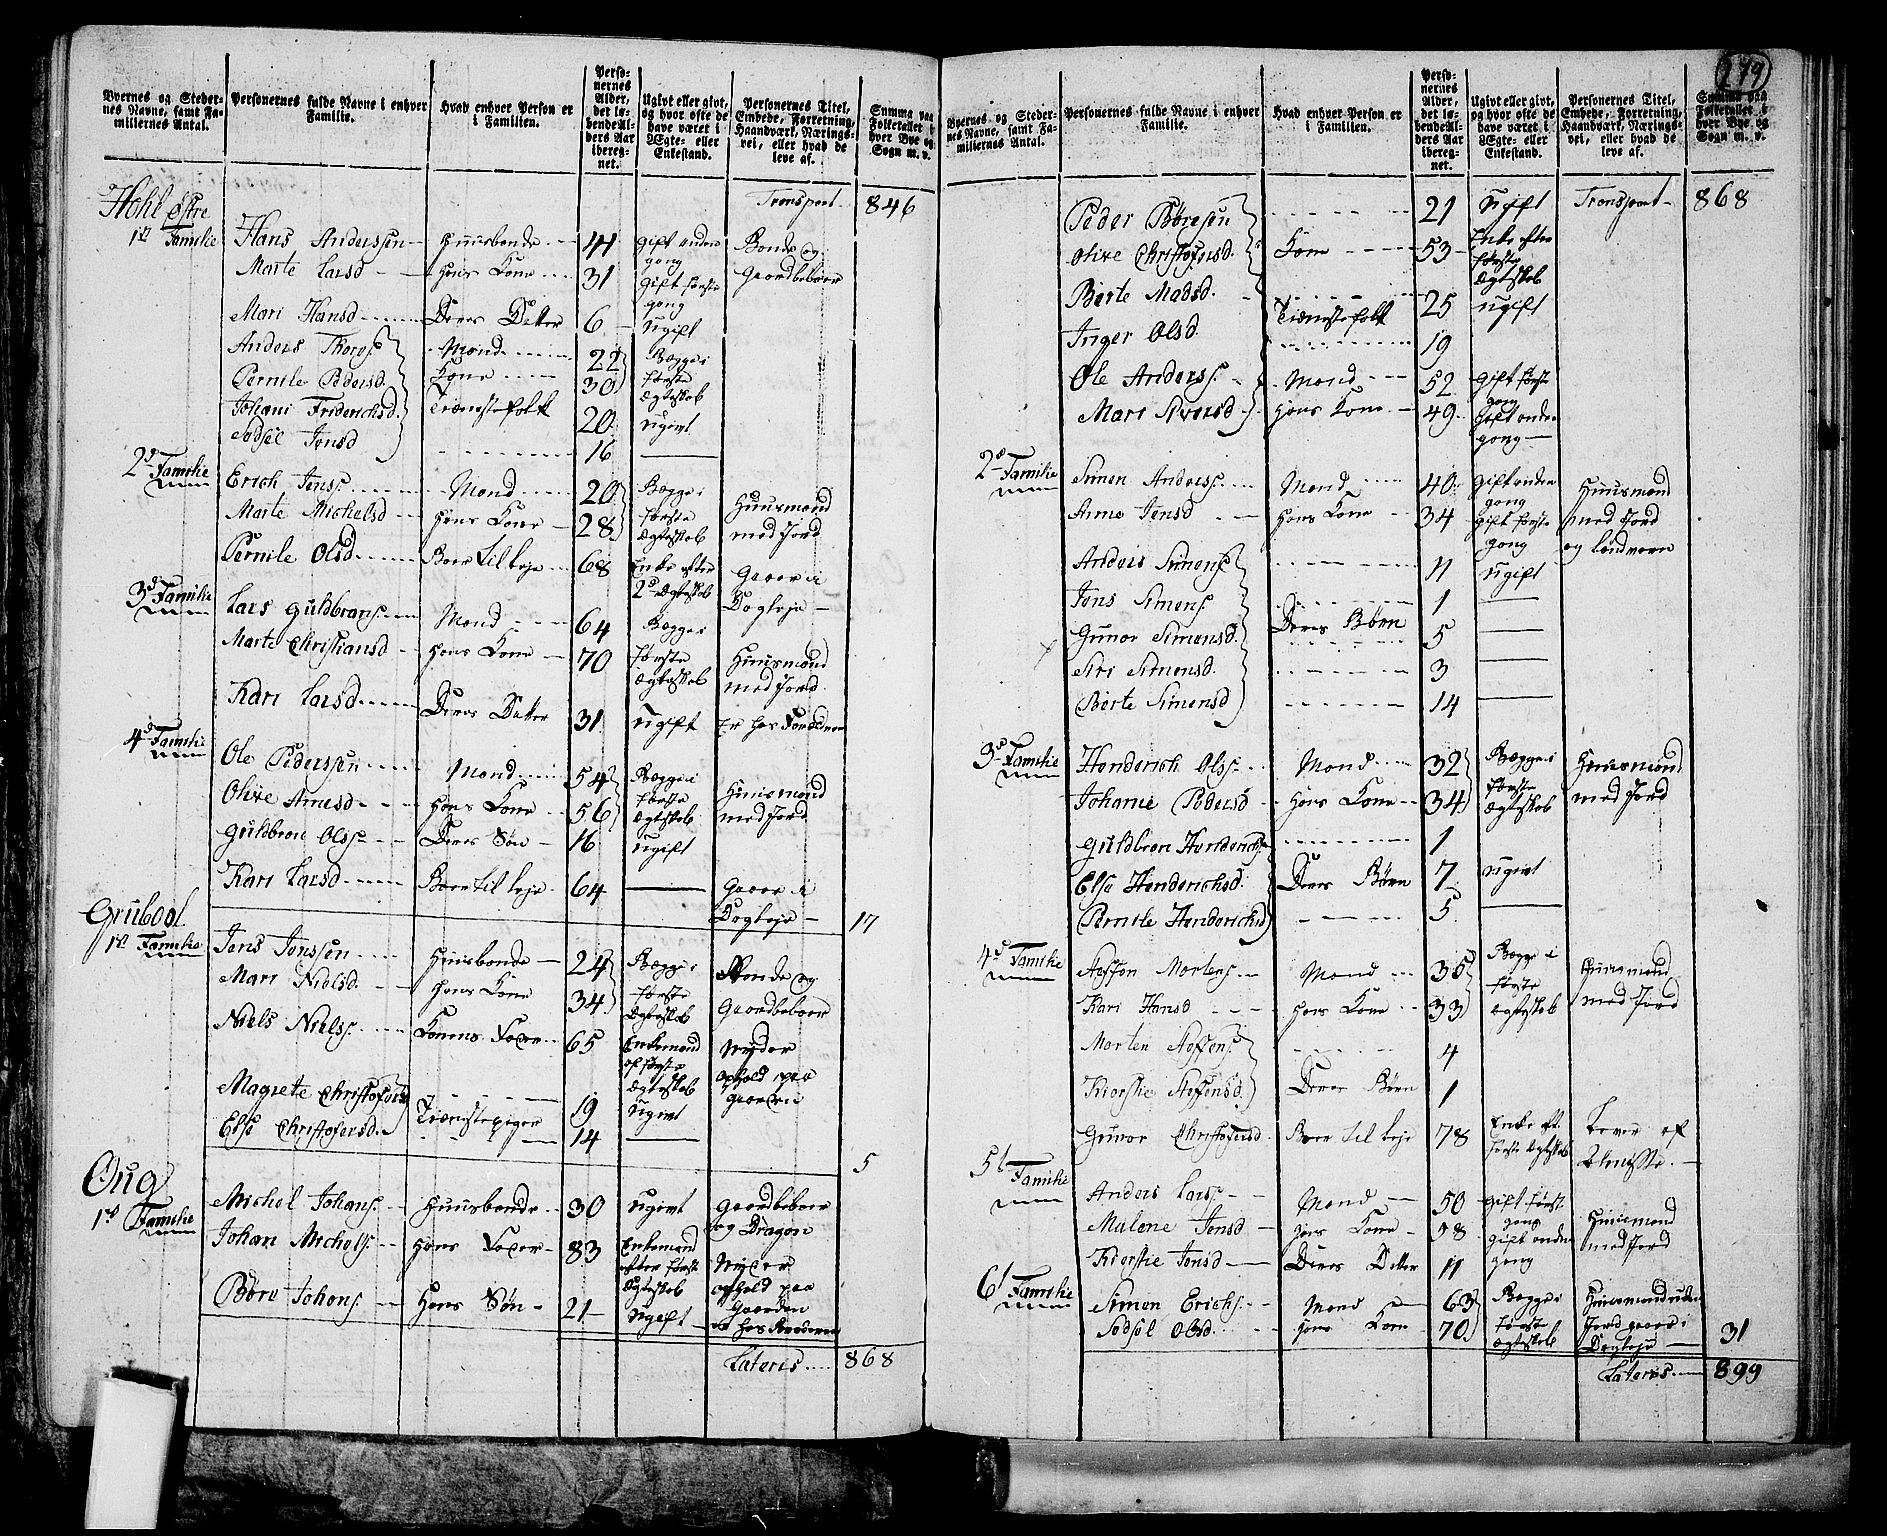 Byernes og Steder-
nes Navne, samt Fa-
miliernes Antal.
Personernes fulde Navne i enhver
Familie.
Hvad enhver Person er
i Familien.
Perso-
nernes
Alder,
det lø-
bende Al-
ders Aar
iberegnet.
Ugivt eller givt,
og hvor ofte de
have været i
Egte- eller
Enkestand.
Personernes Titel,
Embede, Forretning,
Haandværk, Nærings-
vei, eller hvad de
leve af.
Summa paa
Folketallet i
hver Bye og
Sogn m. v.
Transport 846
Hohl østre
1st Familie Hans Anderssen Huusbonde 44 gift anden gang Bonde og Gaardbeboer
Marte Larsd hans Kone 31 gift første gang
Mari Hansd Deres Datter 6 ugift
Anders Thores. Mand 22 Begge i
Pernile Pedersd. Kone 30 første Ægteskab
Johani Friderichsd. Tienestefolk 20 ugivt
Sidsel Jonsd 16
2d Familie Erich Jenss. Mand 20 Begge i
Marte Michelsd hans Kone 28 første Ægteskab Huusmand med Jord
Pernile Olsd Boer til leje 68 Enke efter 2d Ægteskab Gaaer i Dagleje
3d Familie Lars Guldbrans. Mand 64 Begge i
Marte Christiansd hans Kone 70 første Ægteskab Huusmand med Jord
Kari Larsd Deres Datter 31 ugift Er hos Forældrene
4d Familie Ole Pederssen Mand 54 Begge i
Olive Arnesd hans Kone 56 første Ægteskab Huusmand med Jord
Guldbran Olss. Deres Søn 16 ugift
Kari Larsd Boer til leje 64 Gaaer i Dagleje 17
Grubool
1st Familie Jens Jonssen Huusbonde 24 Begge i Bonde og
Mari Nielsd. hans Kone 34 første Ægteskab Gaardbeboer
Niels Nielss. Konens Fader 65 Enkemand af første Ægteskab Nyder ophold paa Gaarden
Magrete Christofersd 19 ugivt
Else Christofersd. Tienestepiger 14
5
Oug
1st Familie Michel Johans. Huusbonde 30 ugivt Gaardbeboer og Dragon
Johan Michels. hans Fader 83 Enkemand efter første Ægteskab Nyder ophold paa Gaarden
Børe Johans. Hans Søn 21 ugift hos Broderen
Lateris 868
279
Byernes og Steder-
nes Navne, samt Fa-
miliernes Antal.
Personernes fulde Navne i enhver
Familie.
Hvad enhver Person er
i Familien.
Perso-
nernes
Alder,
det lø-
bende Al-
ders Aar
iberegnet.
Ugivt eller givt,
og hvor ofte de
have været i
Egte- eller
Enkestand.
Personernes Titel,
Embede, Forretning,
Haandværk, Nærings-
vei, eller hvad de
leve af.
Summa paa
Folketallet i
hver Bye og
Sogn m. v.
Peder Børesen 21 Ugift Transport 868
Olive Christofersd. Kone 53 Enke efter første Ægteskab
Berte Madsd. Tienestefolk 25 ugift
Inger Olsd 19
Ole Anderss. Mand 52 gift første gang
Mari Siversd hans Kone 49 gift anden gang
2d Familie Simen Anderss. Mand 40 gift anden gang Huusmand
Anne Jensd hans Kone 34 gift første gang med Jord og landvern
Anders Simens. 11 ugift
Jens Simens. 1
Gunor Simensd. Deres Børn 5
Siri Simensd. 3
Berte Simensd 14
3d Familie Henderich Olss. Mand 32 Begge i Huusmand
Johanne Pedersd hans Kone 34 første Ægteskab med Jord
Guldbran Henderichs. 1
Else Henderichsd. Deres Børn 7 ugivt
Pernile Henderichsd 5
4d Familie Steffen Mortens. Mand 35 Begge i Huusmand
Kari Hansd hans Kone 33 første Ægteskab med Jord
Morten Steffens. 4
Kierstie Steffensd. Deres Børn 1
Gunor Christofersd. Boer til leje 78 Enke eft. første Ægteskab Lever af Almisse.
5t Familie Anders Larss. Mand 50 gift først gang Huusmand
Malene Jensd hans Kone 38 gift anden gang med Jord
Kierstie Jensd Deres Datter 11
6t Familie Simen Erichs. Mand 63 Begge i Huusmand uden
Sidsel Olsd. hans Kone 70 første Ægteskab Jord gaaer i Dagleje 31
Lateris 899